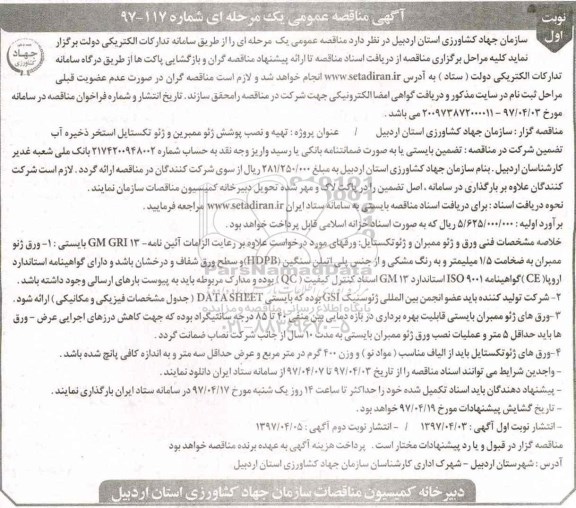 نوبت اول
آگهی مناقصه عمومی یک مرحله ای شماره ۱۱۷-۹۷
جهاد کشاورزی
سازمان جهاد کشاورزی استان اردبیل در نظر دارد مناقصه عمومی یک مرحله ای را از طریق سامانه تدارکات الکتریکی دولت برگزار
نماید کلیه مراحل برگزاری مناقصه از دریافت اسناد مناقصه تا ارائه پیشنهاد مناقصه گران و بازگشایی پاکت ها از طریق درگاه سامانه
تدارکات الکتریکی دولت ( ستاد ) به آدرس www.setadiran.ir انجام خواهد شد و لازم است مناقصه گران در صورت عدم عضویت قبلی
مراحل ثبت نام در سایت مذکور و دریافت گواهی امضا الکترونیکی جهت شرکت در مناقصه را محقق سازند. تاریخ انتشار و شماره فراخوان مناقصه در سامانه
مورخ ۹۷/۰۴/۰۳ - ۲۰۰۹۷۳۸۷۲۰۰۰۰۱۱ می باشد .
مناقصه گزار : سازمان جهاد کشاورزی استان اردبیل / عنوان پروژه : تهیه و نصب پوشش ژئو ممبرین و ژئو تکستایل استخر ذخیره آب
تضمین شرکت در مناقصه : تضمین بایستی یا به صورت ضمانتنامه بانکی یا رسید واریز وجه نقد به حساب شماره ۲۱۷۴۲۰۰۹۴۸۰۰۲ بانک ملی شعبه غدیر
کارشناسان اردبیل . بنام سازمان جهاد کشاورزی استان اردبیل به مبلغ ۲۸۱/۲۵۰/۰۰۰ ریال از سوی شرکت کنندگان در مناقصه ارائه گردد . لازم است شرکت
کنندگان علاوه بر بارگذاری در سامانه ، اصل تضمین را در پاکت لاک و مهر شده تحویل دبیرخانه کمیسیون مناقصات سازمان نمایند .
نحوه دریافت اسناد : برای دریافت اسناد مناقصه بایستی به سامانه ستاد ایران www.setadiran.ir مراجعه فرمایید .
برآورد اولیه : ۵/۶۲۵/۰۰۰/۰۰۰ ریال که به صورت اسناد خزانه اسلامی قابل پرداخت خواهد بود .
خلاصه مشخصات فنی ورق و ژئو ممبران و ژئوتکستایل: ورقهای مورد درخواست علاوه بر رعایت الزامات آئین نامه- GM GRI ۱۳ بایستی : ۱- ورق ژئو
ممبران به ضخامت ۱/۵ میلیمتر و به رنگ مشکی و از جنس پلی اتیلن سنگین (HDPB) و سطح ورق شفاف و درخشان باشد و دارای گواهینامه استاندارد
اروپا (CE) گواهینامه ISO ۹۰۰۱ استاندارد GM ۱۳ اسناد کنترل کیفیت (QC) بوده و مدارک مربوطه باید به پیوست بارهای ارسالی وجود داشته باشد .
۲- شرکت تولید کننده باید عضو انجمن بین المللی ژئوسنتیک GSI بوده که بایستی DATA SHEET (جدول مشخصات فیزیکی و مکانیکی ) ارائه شود .
۳- ورق های ژئو ممبران بایستی قابلیت بهره برداری در بازه دمایی بین منفی ۴۰ تا ۸۵ درجه سانتیگراد بوده که جهت کاهش درزهای اجرایی عرض - ورق
ها باید حداقل ۵ متر و عملیات نصب ورق ژئو ممبران بایستی به مدت ۱۰ سال از جانب شرکت نصاب ضمانت گردد .
۴- ورق های ژئوتکستایل باید از الیاف مناسب ( مواد نو ) و وزن ۴۰۰ گرم در متر مربع و عرض حداقل سه متر و به اندازه کافی پانچ شده باشد .
- واجدین شرایط می توانند اسناد مناقصه را از تاریخ ۹۷/۰۴/۰۳ تا ۹۷/۰۴/۰۷ از سامانه ستاد ایران دانلود نمایند .
- پیشنهاد دهندگان باید اسناد تکمیل شده خود را حداکثر تا ساعت ۱۴ روز یک شنبه مورخ ۹۷/۰۴/۱۷ در سامانه ستاد ایران بارگذاری نمایند .
- تاریخ گشایش پیشنهادات مورخ ۹۷/۰۴/۱۹ خواهد بود .
- انتشار نوبت اول آگهی : ۱۳۹۷/۰۴/۰۳ / - انتشار نوبت دوم آگهی : ۱۳۹۷/۰۴/۰۵
مناقصه گزار در قبول و یا رد پیشنهادات مختار است . پرداخت هزینه آگهی به عهده برنده مناقصه خواهد بود
آدرس : شهرستان اردبیل - شهرک اداری کارشناسان سازمان جهاد کشاورزی استان اردبیل
دبیرخانه کمیسیون مناقصات سازمان جهاد کشاورزی استان اردبیل